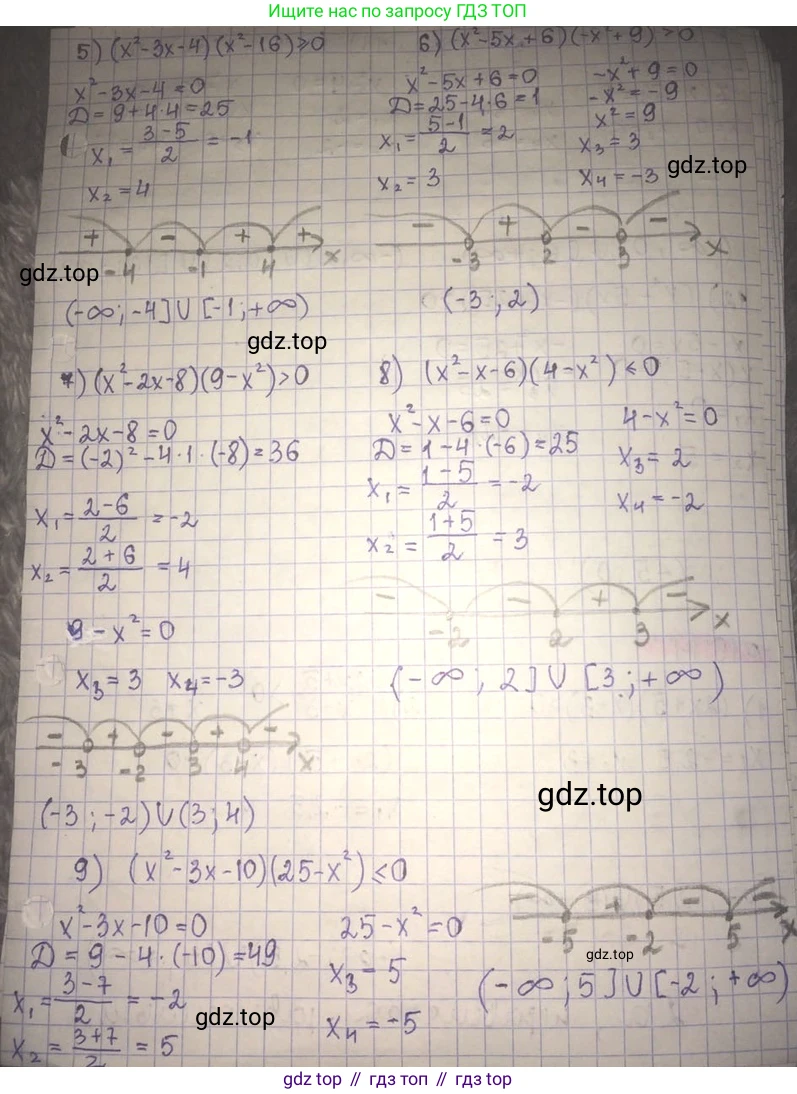 Ищите нас по запросу ГДЗ ТОП
5) (x²-3x-4)(x²-16)≥0
x²-3x-4=0
D=9+4·4=25
x₁=(3-5)/2=-1
x₂=4
+ - + +
-4 -1 4 x
(-∞;-4]∪[-1;+∞)
6) (x²-5x+6)(-x²+9)>0
x²-5x+6=0
D=25-4·6=1
x₁=(5-1)/2=2
x₂=3
-x²+9=0
-x²=-9
x²=9
x₃=3
x₄=-3
gdz.top
- + - -
-3 2 3 x
(-3;2)
gdz.top
gdz.top
7) (x²-2x-8)(9-x²)>0
x²-2x-8=0
D=(-2)²-4·1·(-8)=36
x₁=(2-6)/2=-2
x₂=(2+6)/2=4
9-x²=0
x₃=3 x₄=-3
- + - + -
-3 -2 3 4 x
(-3;-2)∪(3;4)
8) (x²-x-6)(4-x²)≤0
x²-x-6=0
D=1-4·(-6)=25
x₁=(1-5)/2=-2
x₂=(1+5)/2=3
4-x²=0
x₃=2
x₄=-2
- - + -
-2 2 3 x
(-∞;2]∪[3;+∞)
gdz.top
9) (x²-3x-10)(25-x²)≤0
x²-3x-10=0
D=9-4·(-10)=49
x₁=(3-7)/2=-2
x₂=(3+7)/2=5
gdz.top
25-x²=0
x₃-5
x₄=-5
- + - -
-5 -2 5 x
gdz.top
(-∞;5]∪[-2;+∞)
gdz.top // гдз топ // gdz top